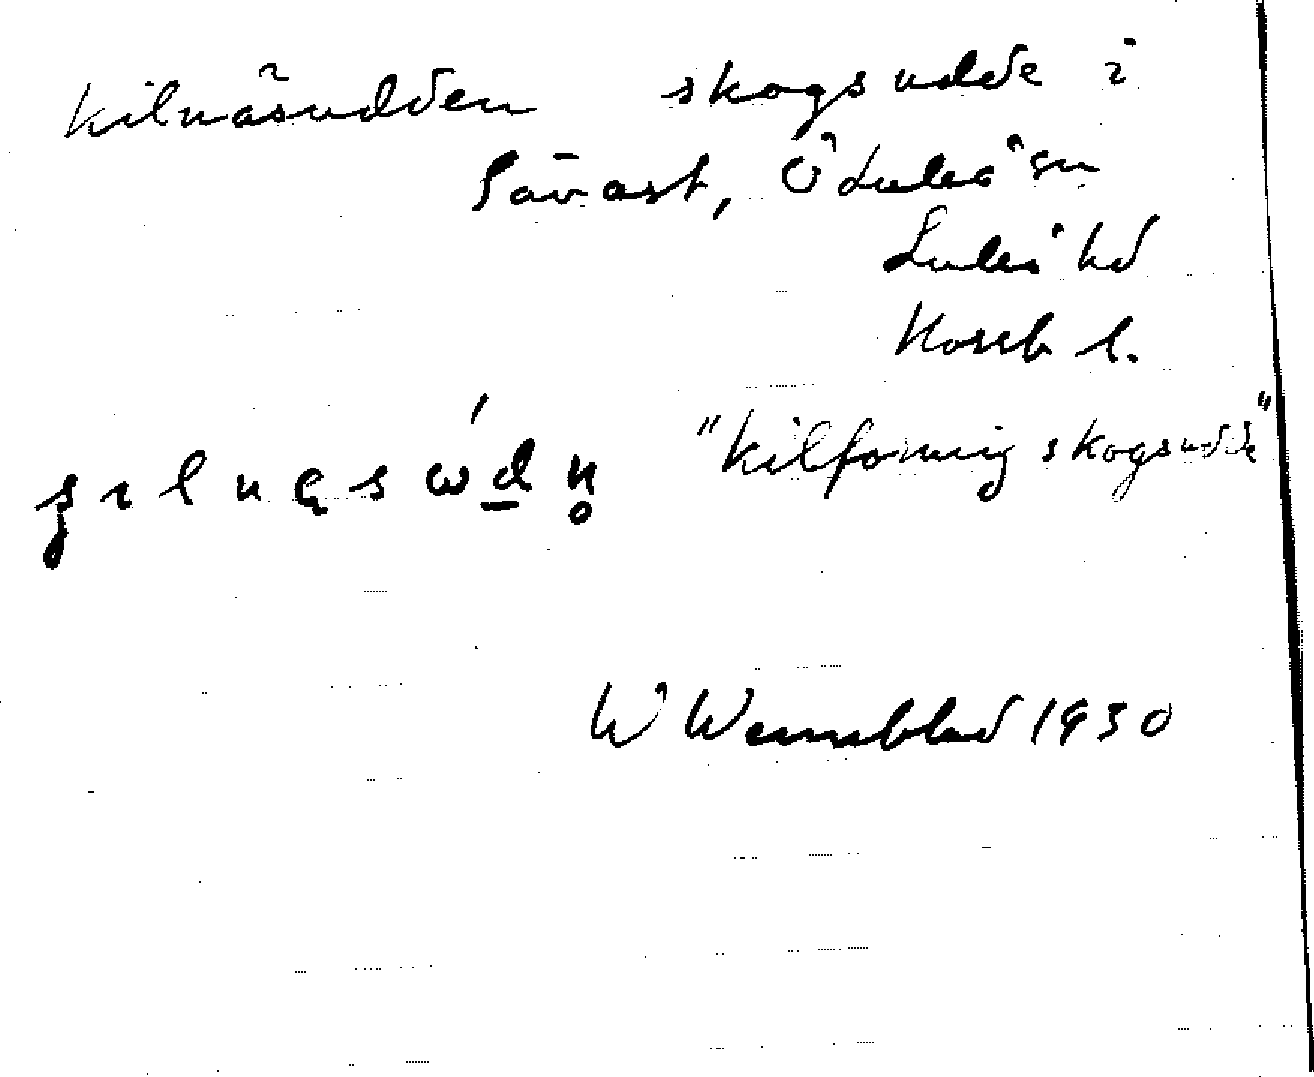 Kilnäsudden skogsudde i
Sävast, Ö Luleå sn
Luleå hd
Norrb l.
"kilformig skogsudde"
W Wennblad 1930